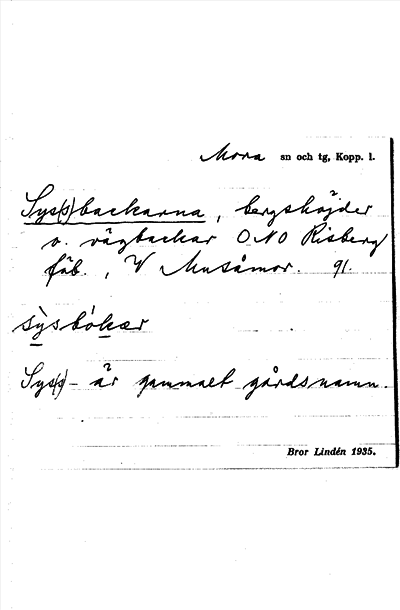 Mora sn och tg, Kopp. l.
Sys(s)backarna, bergshöjder
o. vägbackar ONO Risberg
fäb., V Musåmor. 91.
sỳ̲sbók̲ær
Sys(s)- är gammalt gårdsnamn.
Bror Lindén 1935.